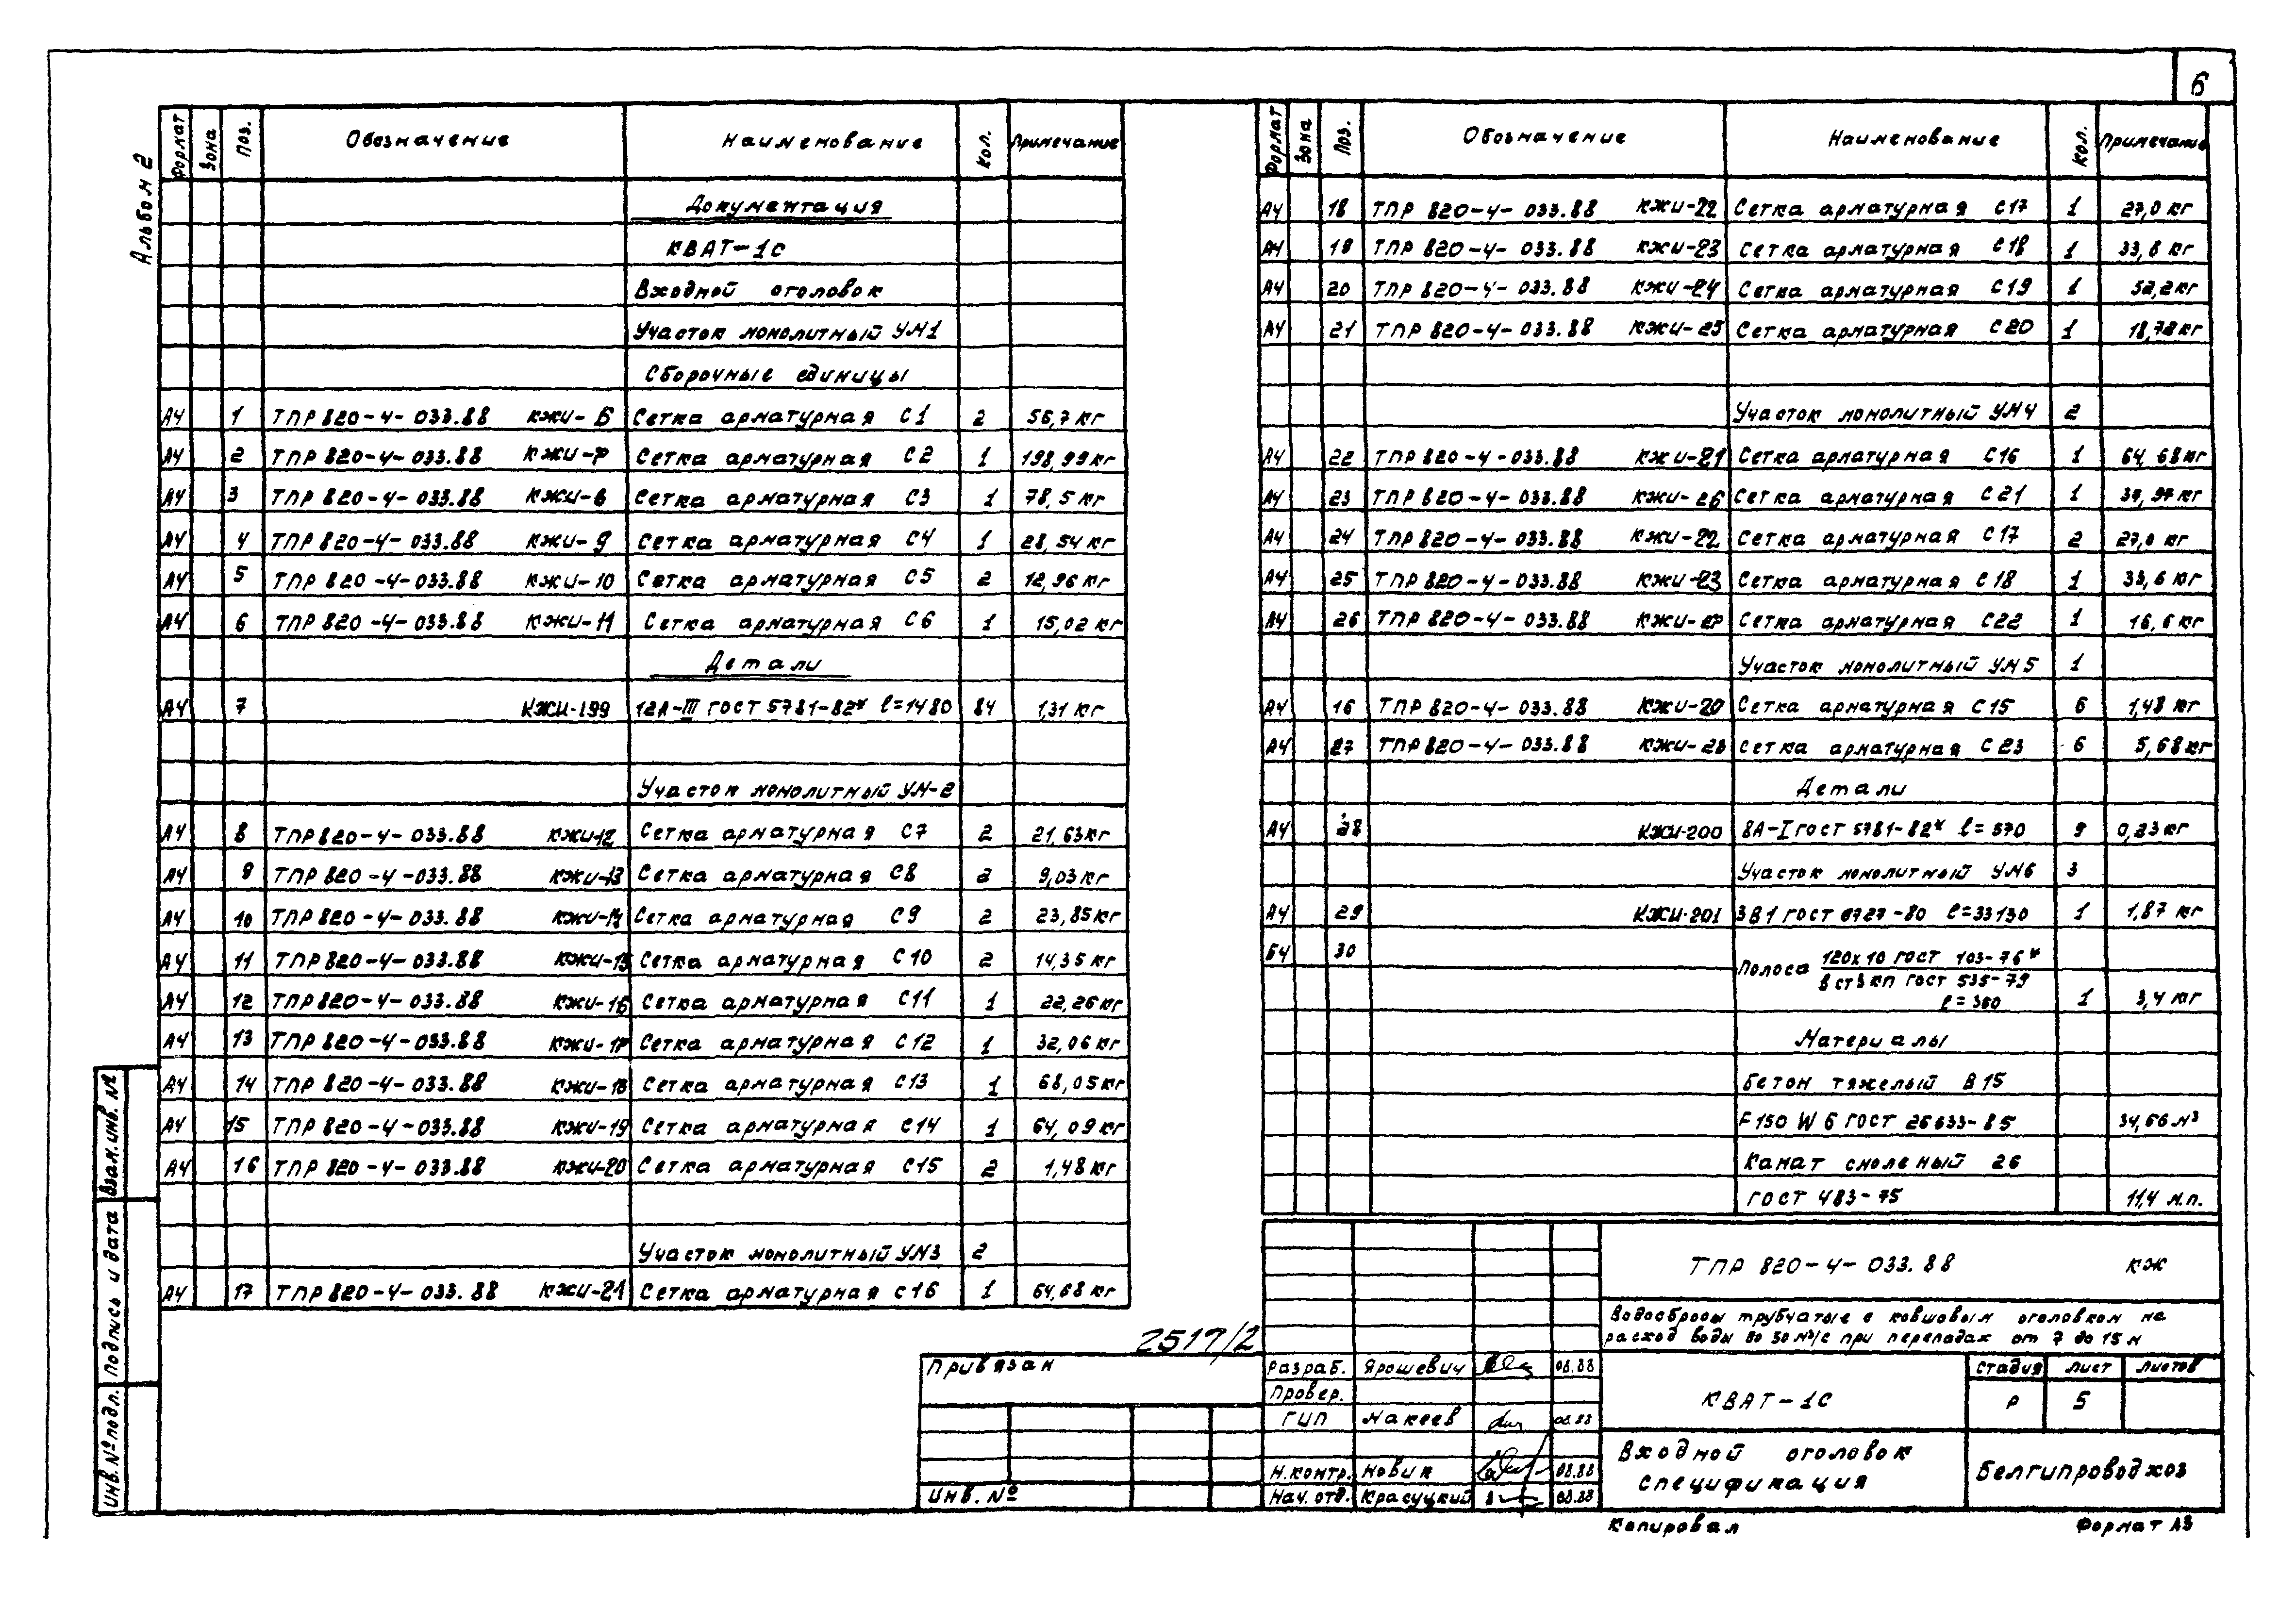 6
Альбом 2
Формат Зона Поз. Обозначение Наименование Кол. Примечание
Документация
КВАТ-1с
Входной оголовок
Участок монолитный УМ1
Сборочные единицы
А4 1 ТПР 820-4-033.88 КЖИ-6 Сетка арматурная С1 2 56,7 кг
А4 2 ТПР 820-4-033.88 КЖИ-7 Сетка арматурная С2 1 198,99 кг
А4 3 ТПР 820-4-033.88 КЖИ-8 Сетка арматурная С3 1 78,5 кг
А4 4 ТПР 820-4-033.88 КЖИ-9 Сетка арматурная С4 1 28,54 кг
А4 5 ТПР 820-4-033.88 КЖИ-10 Сетка арматурная С5 2 12,96 кг
А4 6 ТПР 820-4-033.88 КЖИ-11 Сетка арматурная С6 1 15,02 кг
Детали
А4 7 КЖИ-199 12А-III ГОСТ 5781-82* l=1480 84 1,31 кг
Участок монолитный УМ-2
А4 8 ТПР 820-4-033.88 КЖИ-12 Сетка арматурная С7 2 21,63 кг
А4 9 ТПР 820-4-033.88 КЖИ-13 Сетка арматурная С8 2 9,03 кг
А4 10 ТПР 820-4-033.88 КЖИ-14 Сетка арматурная С9 2 23,85 кг
А4 11 ТПР 820-4-033.88 КЖИ-15 Сетка арматурная С10 2 14,35 кг
А4 12 ТПР 820-4-033.88 КЖИ-16 Сетка арматурная С11 1 22,26 кг
А4 13 ТПР 820-4-033.88 КЖИ-17 Сетка арматурная С12 1 32,06 кг
А4 14 ТПР 820-4-033.88 КЖИ-18 Сетка арматурная С13 1 68,05 кг
А4 15 ТПР 820-4-033.88 КЖИ-19 Сетка арматурная С14 1 64,09 кг
А4 16 ТПР 820-4-033.88 КЖИ-20 Сетка арматурная С15 2 1,48 кг
Участок монолитный УМ3 2
А4 17 ТПР 820-4-033.88 КЖИ-21 Сетка арматурная С16 1 64,68 кг
Формат Зона Поз. Обозначение Наименование Кол. Примечание
А4 18 ТПР 820-4-033.88 КЖИ-22 Сетка арматурная С17 1 27,0 кг
А4 19 ТПР 820-4-033.88 КЖИ-23 Сетка арматурная С18 1 33,6 кг
А4 20 ТПР 820-4-033.88 КЖИ-24 Сетка арматурная С19 1 52,2 кг
А4 21 ТПР 820-4-033.88 КЖИ-25 Сетка арматурная С20 1 18,72 кг
Участок монолитный УМ4 2
А4 22 ТПР 820-4-033.88 КЖИ-21 Сетка арматурная С16 1 64,68 кг
А4 23 ТПР 820-4-033.88 КЖИ-26 Сетка арматурная С21 1 кг
А4 24 ТПР 820-4-033.88 КЖИ-22 Сетка арматурная С17 2 27,0 кг
А4 25 ТПР 820-4-033.88 КЖИ-23 Сетка арматурная С18 1 33,6 кг
А4 26 ТПР 820-4-033.88 КЖИ-27 Сетка арматурная С22 1 16,6 кг
Участок монолитный УМ5 1
А4 16 ТПР 820-4-033.88 КЖИ-20 Сетка арматурная С15 6 1,48 кг
А4 27 ТПР 820-4-033.88 КЖИ-28 Сетка арматурная С23 6 5,68 кг
Детали
А4 28 КЖИ-200 8А-I ГОСТ 5781-82* l=570 9 0,23 кг
Участок монолитный УМ6 3
А4 29 КЖИ-201 3В1 ГОСТ 6727-80 l=33130 1 1,87 кг
Б4 30 Полоса 120х10 ГОСТ 103-76*
В ст3кп ГОСТ 535-79
l=360 1 3,4 кг
Материалы
Бетон тяжелый В15
F150 W6 ГОСТ 26633-85 34,66 м³
Канат смоленый 26
ГОСТ 483-75 11,4 м.п.
Взам.инв.№
Подпись и дата
Инв.№подл.
2517/2
Привязан
Инв. №
ТПР 820-4-033.88 КЖ
Водосбросы трубчатые с ковшовым оголовком на
расход воды до 50 м³/с при перепадах от 7 до 15 м
Разраб. Ярошевич 08.88
Провер.
ГИП Макеев 08.88
Н.контр. Новик 08.88
Нач. отд. Красуцкий 08.88
КВАТ-1с
Стадия Лист Листов
Р 5
Входной оголовок
спецификация
Белгипроводхоз
Копировал Формат А3